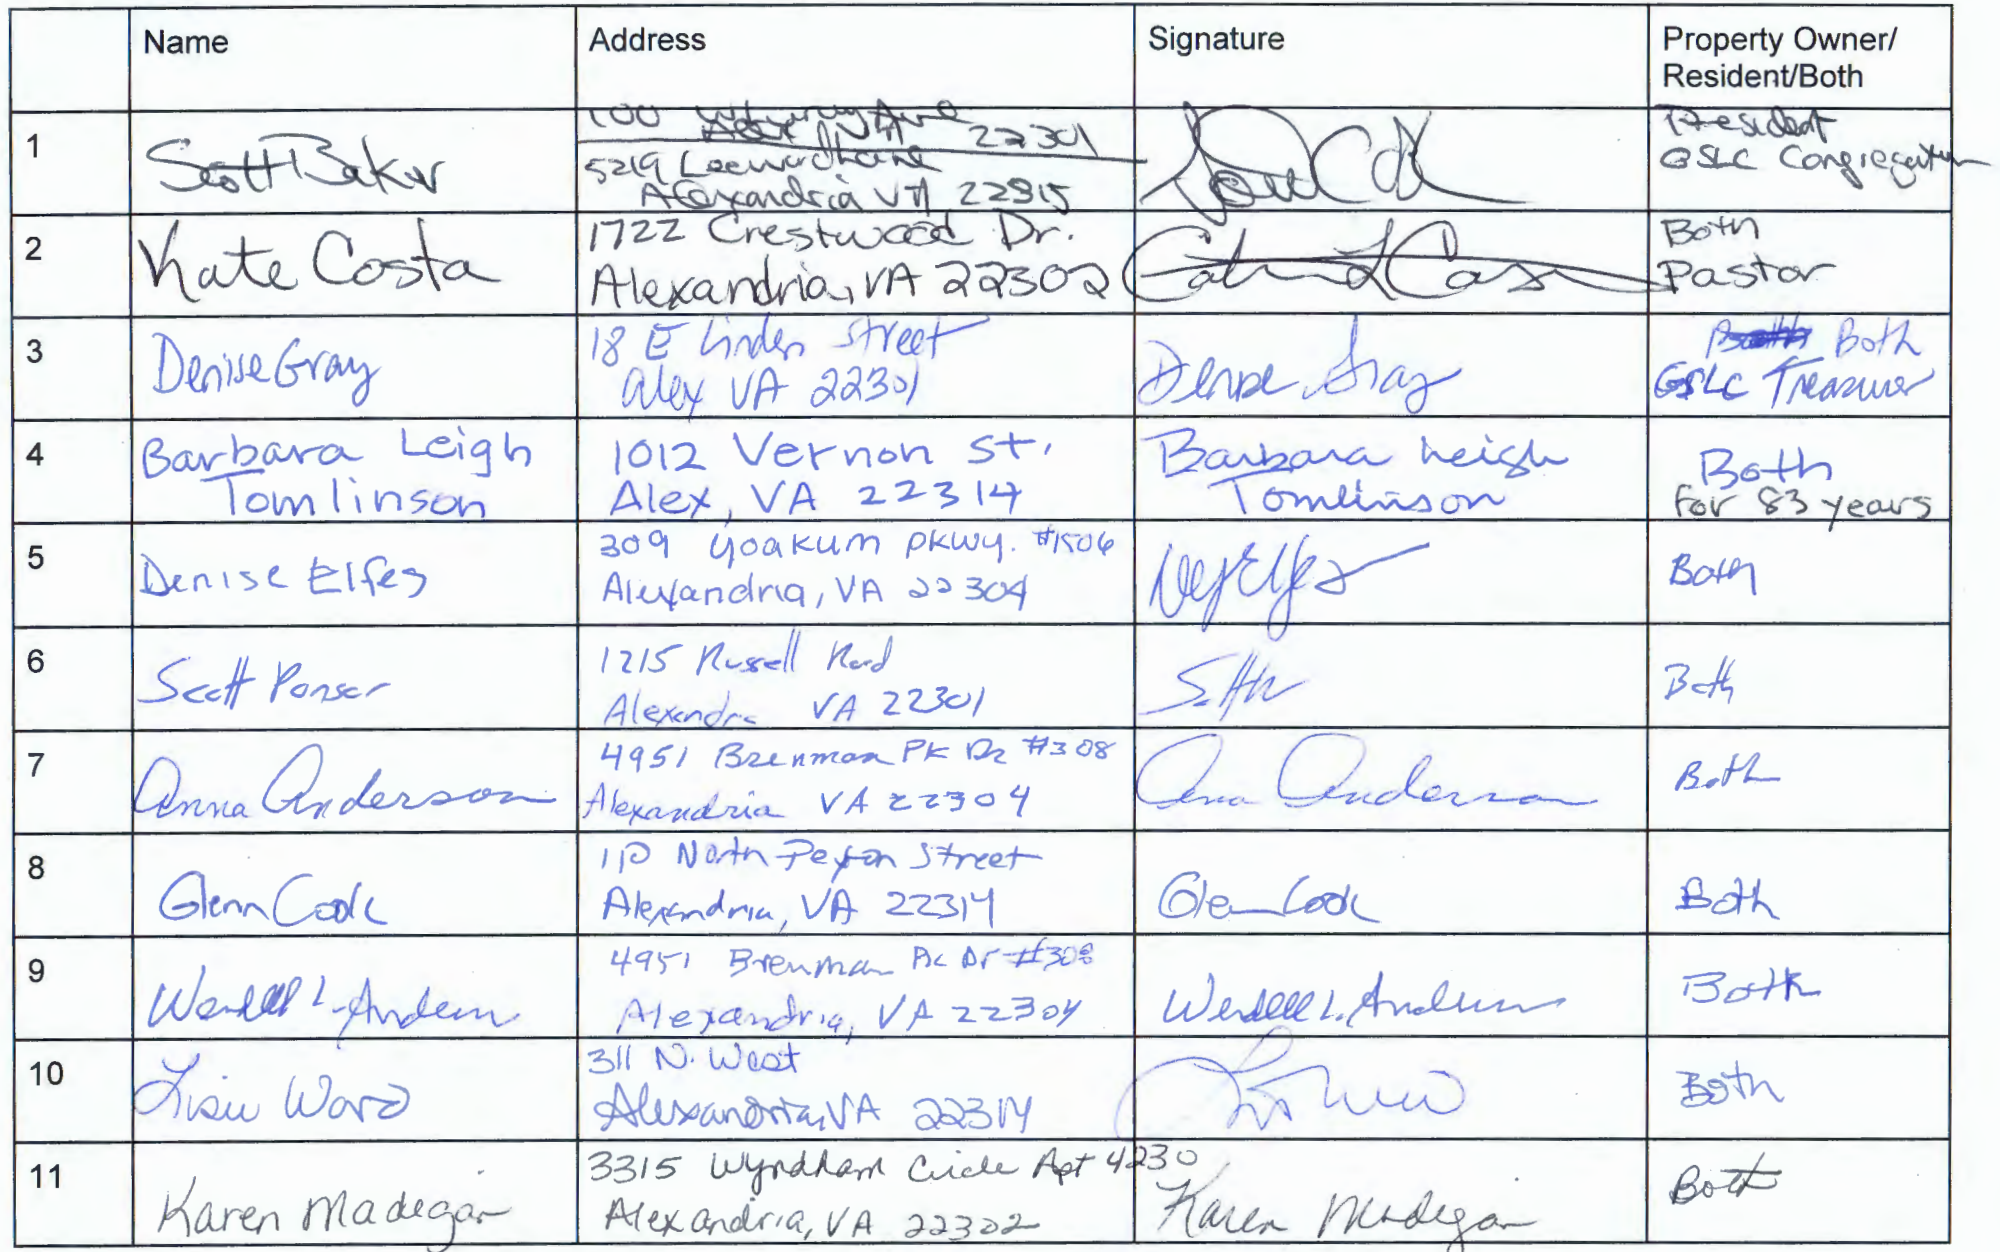 Name Address Signature Property Owner/
Resident/Both
1 Scott Baker 100 Ave
Alex VA 22301
5219 Leeward Lane
Alexandria VA 22315
President
GSLC Congregation
2 Kate Costa 1722 Crestwood Dr.
Alexandria, VA 22302
Both
Pastor
3 Denise Gray 18 E Linden Street
Alex VA 22301
Denise Gray
Both
GSLC Treasurer
4 Barbara Leigh
Tomlinson
1012 Vernon St.
Alex, VA 22314
Barbara Leigh
Tomlinson
Both
for 83 years
5 Denise Elfes 309 Yoakum Pkwy. #1506
Alexandria, VA 22304
Both
6 Scott 1215 Russell Road
Alexandria VA 22301
Both
7 Anna Anderson 4951 Brenman Pk Dr #308
Alexandria VA 22304
Anna Anderson
Both
8 Glenn Cook North Peyton Street
Alexandria, VA 22314
Glenn Cook
Both
9 Wendell L. Anderson 4951 Brenman Pk Dr #308
Alexandria, VA 22304
Wendell L. Anderson
Both
10 Ward 311 N. West
Alexandria, VA 22314
Both
11 Karen Madegan 3315 Wyndham Circle Apt 4230
Alexandria, VA 22302
Karen Madegan
Both